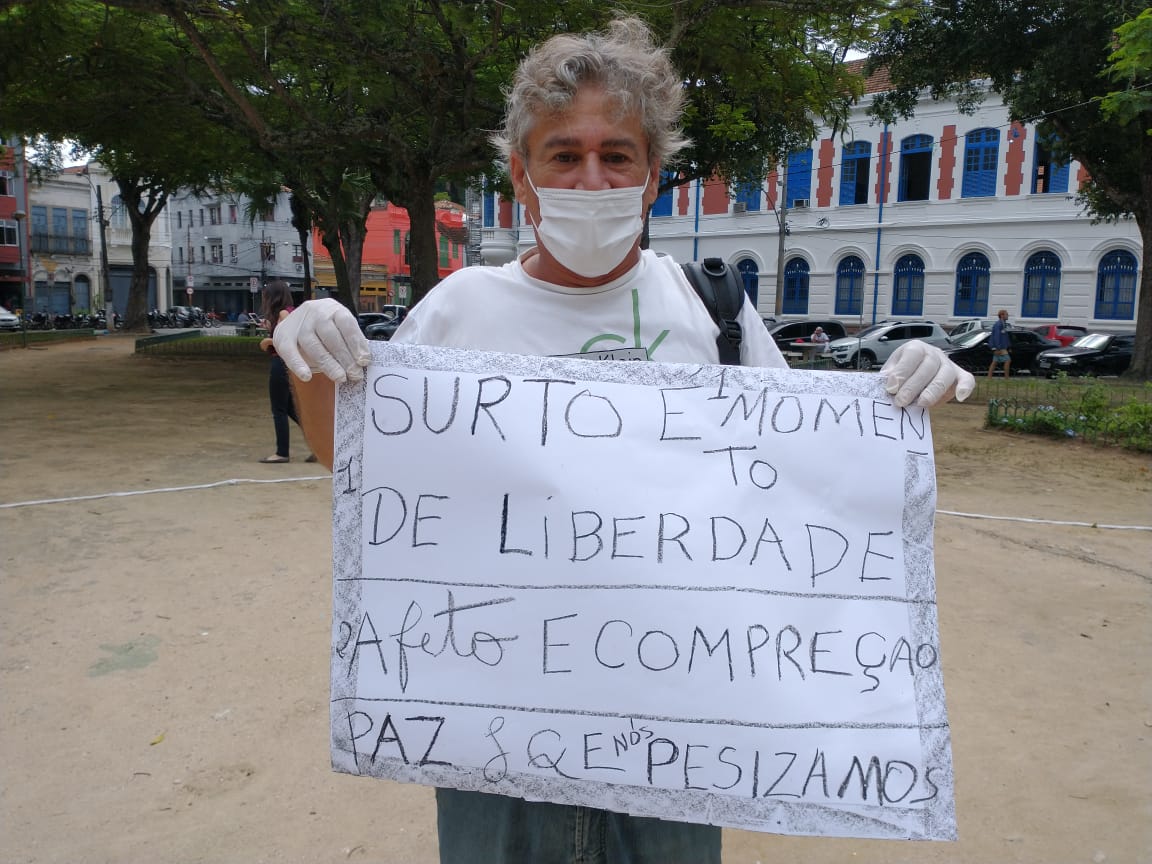 ck
Klein
SURTO É 1 MOMEN
TO
1
DE LiBERDADE
2 Afeto E COMPREÇAO
PAZ Q E NóS PESIZAMOS